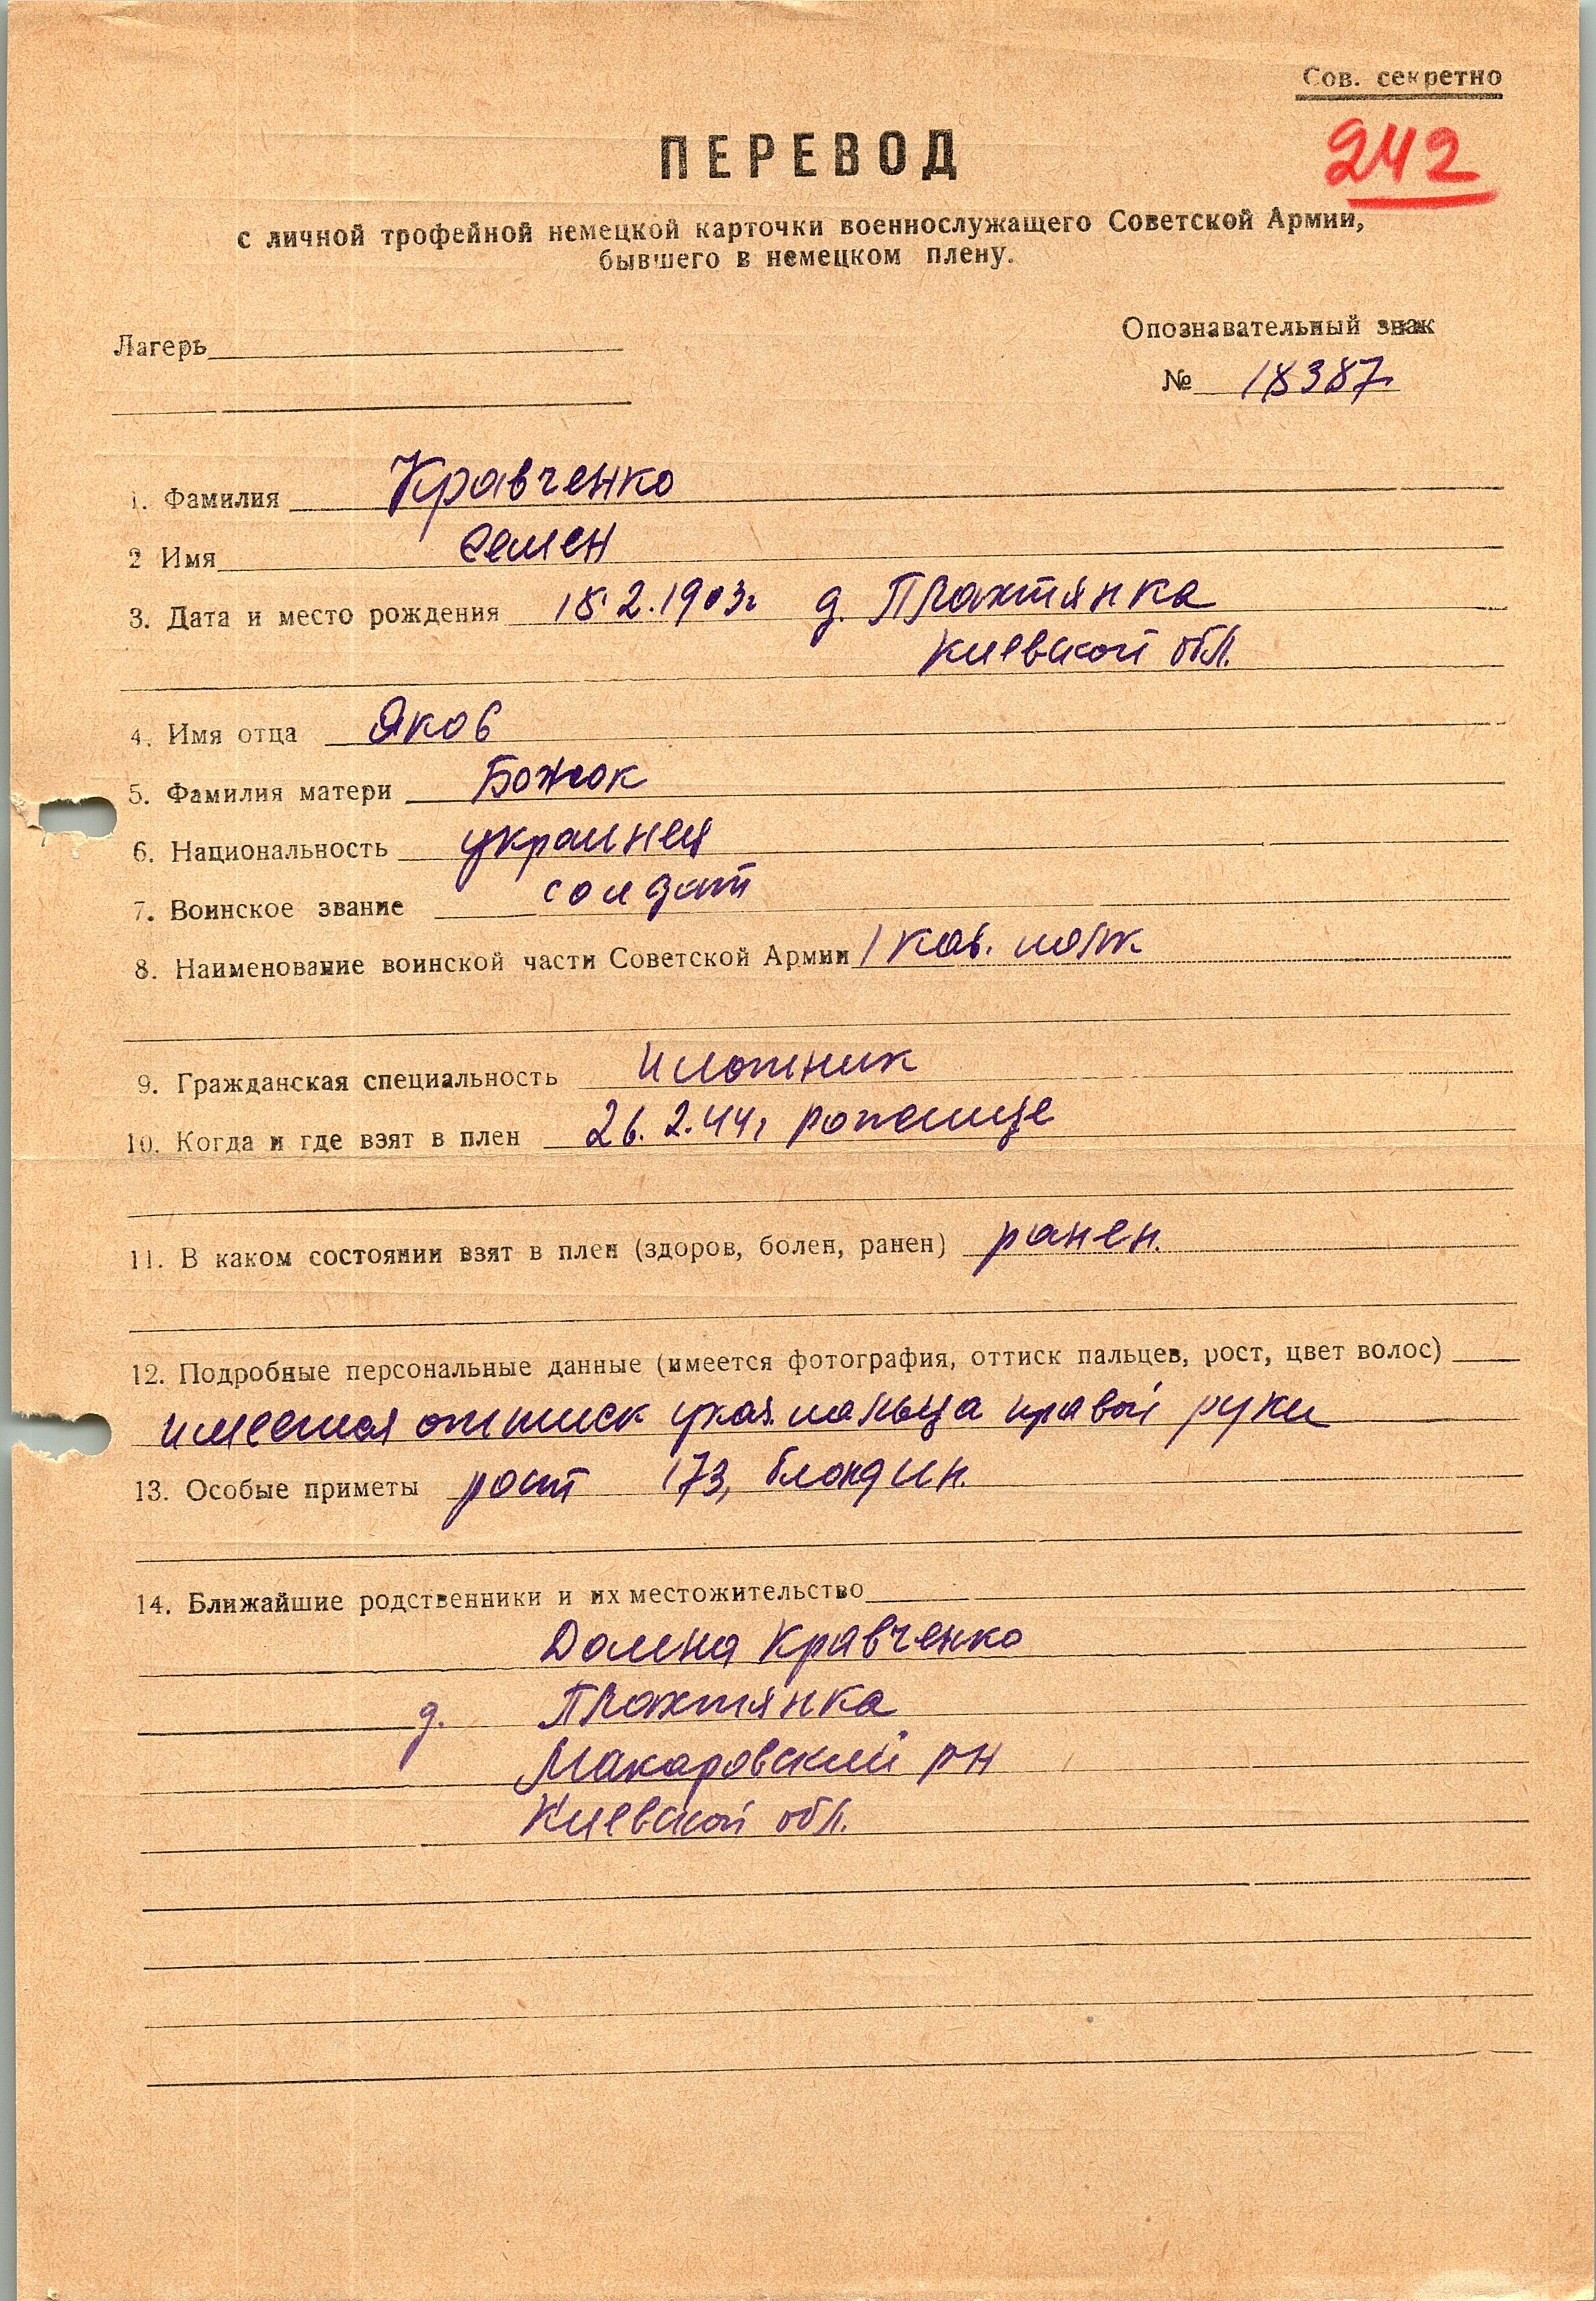 Сов. секретно
242
ПЕРЕВОД
с личной трофейной немецкой карточки военнослужащего Советской Армии,
бывшего в немецком плену.
Лагерь
Опознавательный знак
№ 18387
1. Фамилия Кравченко
2 Имя Семен
3. Дата и место рождения 18.2.1903г д. Плахтянка
Киевской обл.
4. Имя отца Яков
5. Фамилия матери Божок
6. Национальность украинец
7. Воинское звание солдат
8. Наименование воинской части Советской Армии 1 кав. полк
9. Гражданская специальность плотник
10. Когда и где взят в плен 26.2.44, Рожище
11. В каком состоянии взят в плен (здоров, болен, ранен) ранен.
12. Подробные персональные данные (имеется фотография, оттиск пальцев, рост, цвет волос)
имеется оттиск указ. пальца правой руки
13. Особые приметы рост 173, блондин.
14. Ближайшие родственники и их местожительство
Домна Кравченко
д. Плахтянка
Макаровский рн
Киевской обл.